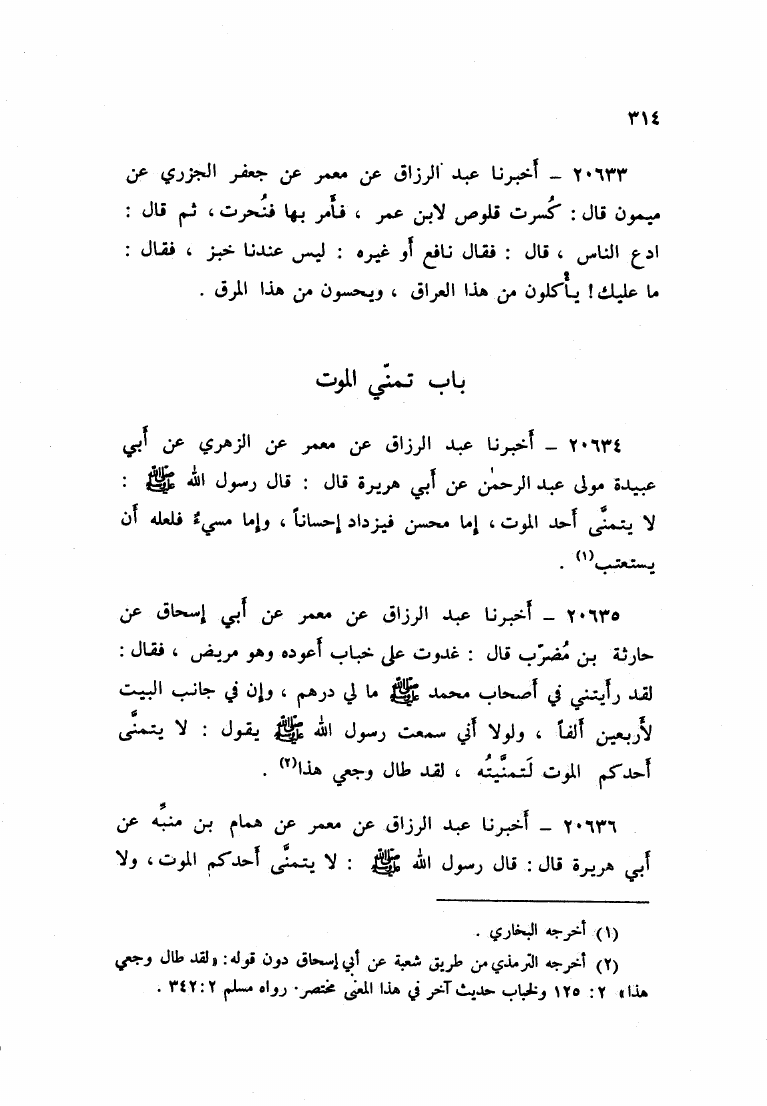 ٣١٤
٢٠٦٣٣ - أخبرنا عبد الرزاق عن معمر عن جعفر الجزري عن
ميمون قال : كُسرت قلوص لابن عمر ، فأمر بها فنُحرت ، ثم قال :
ادع الناس ، قال : فقال نافع أو غيره : ليس عندنا خبز ، فقال :
ما عليك! يأكلون من هذا العراق ، ويحسون من هذا المرق .
باب تمنّي الموت
٢٠٦٣٤ - أخبرنا عبد الرزاق عن معمر عن الزهري عن أبي
عبيدة مولى عبد الرحمٰن عن أبي هريرة قال : قال رسول الله ﷺ :
لا يتمنَّى أحد الموت ، إما محسن فيزداد إحساناً ، وإما مسيءٌ فلعله أن
يستعتب(١) .
٢٠٦٣٥ - أخبرنا عبد الرزاق عن معمر عن أبي إسحاق عن
حارثة بن مُضرّب قال : غدوت على خباب أعوده وهو مريض ، فقال :
لقد رأيتني في أصحاب محمد ﷺ ما لي درهم ، وإن في جانب البيت
لأربعين ألفاً ، ولولا أني سمعت رسول الله ﷺ يقول : لا يتمنَّى
أحدكم الموت لَتمنَّيتُه ، لقد طال وجعي هذا(٢) .
٢٠٦٣٦ - أخبرنا عبد الرزاق عن معمر عن همام بن منبِّه عن
أبي هريرة قال : قال رسول الله ﷺ : لا يتمنَّى أحدكم الموت ، ولا
(١) أخرجه البخاري .
(٢) أخرجه الترمذي من طريق شعبة عن أبي إسحاق دون قوله : «لقد طال وجعي
هذا» ٢ : ١٢٥ ولخباب حديث آخر في هذا المعنى مختصر. رواه مسلم ٢ : ٣٤٢ .